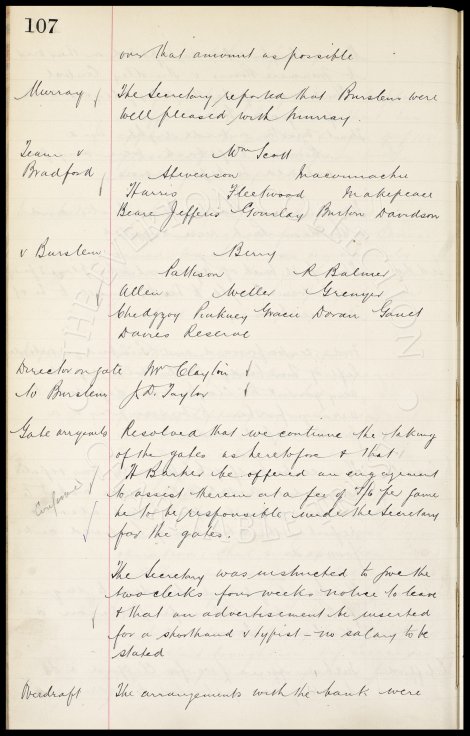 107
over that amount as possible
Murray The Secretary reported that Burslem were
well pleased with Murray.
Team v Wm Scott
Bradford Stevenson Macconnachie
Harris Fleetwood Makepeace
Beare Jefferis Gourlay Burton Davidson
v Burslem Berry
Pattison R Balmer
Allen Weller Grenyer
Chedgzoy Pinkney Gracie Doran Gault
Davies Reserve
Director on gate Mr Clayton
to Burslem J.D. Taylor
Gate arrgmts Resolved that we continue the taking
of the gates as heretofore & that
H Barker be offered an engagement
to assist therein at a fee of 7/6 per game
he to be responsible under the Secretary
for the gates.
The Secretary was instructed to give the
two clerks four weeks notice to leave
& that an advertisement be inserted
for a shorthand & typist – no salary to be
stated
Overdraft The arrangements with the bank were